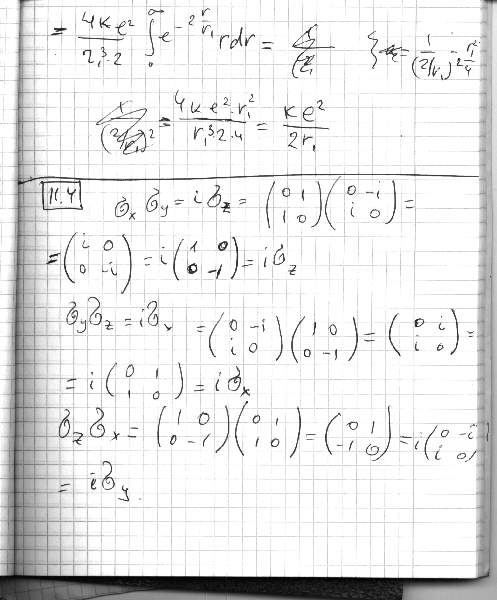 = 4ke²/(r₁³·2) ∫₀^∞ e^(-2 r/r₁) r dr = { = 1/(2/r₁)² = r₁²/4
= 4ke²·r₁²/(r₁³2·4) = ke²/(2r₁)
11.4
σₓ σᵧ = i σ_z = (0 1; 1 0)(0 -i; i 0) =
= (i 0; 0 -i) = i (1 0; 0 -1) = i σ_z
σᵧ σ_z = i σₓ = (0 -i; i 0)(1 0; 0 -1) = (0 i; i 0) =
= i (0 1; 1 0) = i σₓ
σ_z σₓ = (1 0; 0 -1)(0 1; 1 0) = (0 1; -1 0) = i (0 -i; i 0)
= i σᵧ.